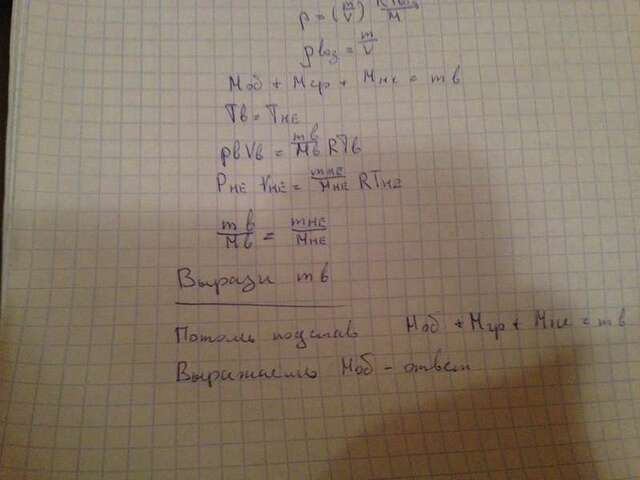 p = (m/V) RTвоз/M
ρвоз = m/V
Mоб + Mгр + Mне = mв
Tв = Tне
pвVв = mв/Mв RTв
Pне Vне = mне/Mне RTне
mв/Mв = mне/Mне
Вырази mв
Потом подстав Mоб + Mгр + Mне = mв
Выражаемь Mоб - ответ